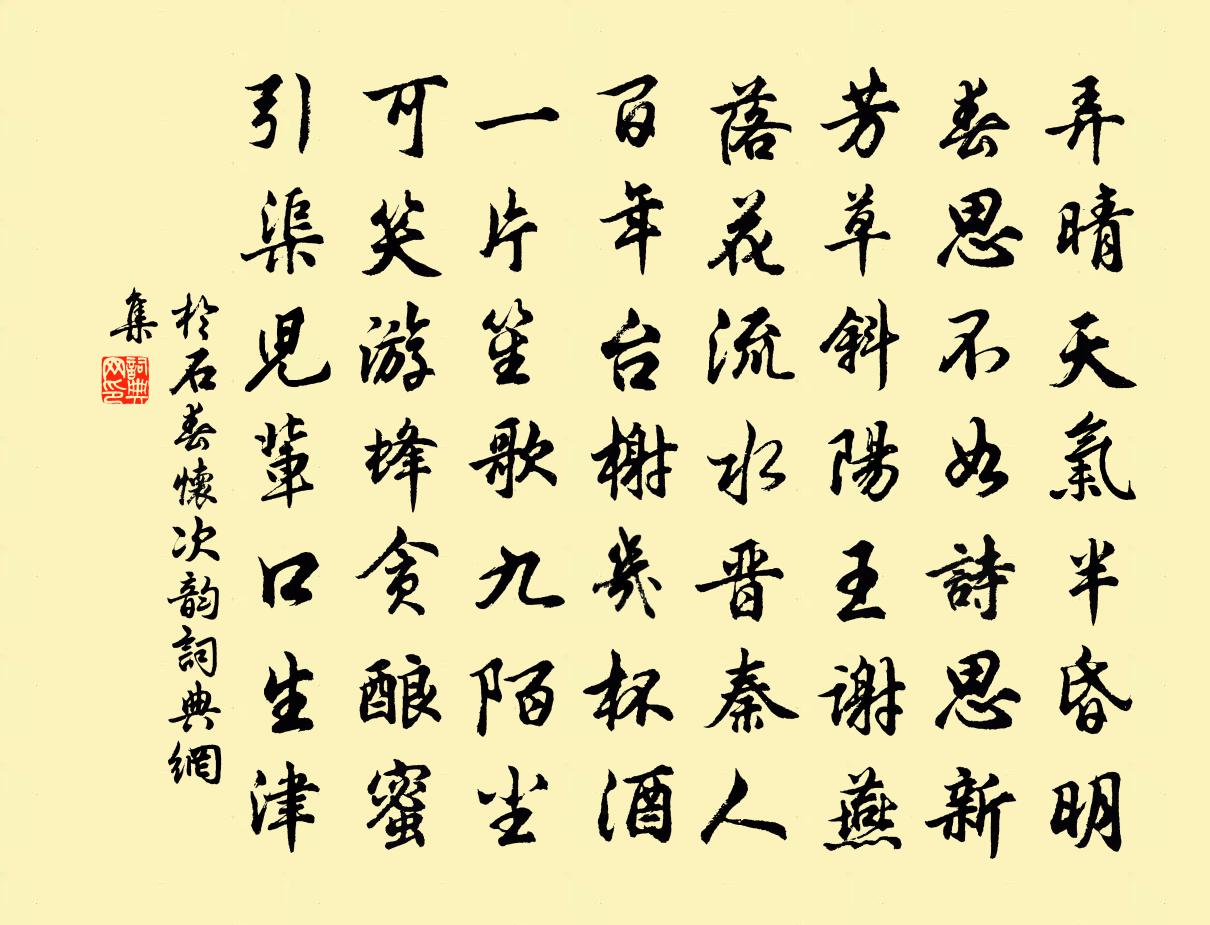 弄晴天氣半昏明
春思不如詩思新
芳草斜陽王謝燕
落花流水晋秦人
百年台榭幾杯酒
一片笙歌九陌尘
可笑游蜂貪酿蜜
引渠兒輩口生津
於石春懷次韵詞典網
集
詞典网印